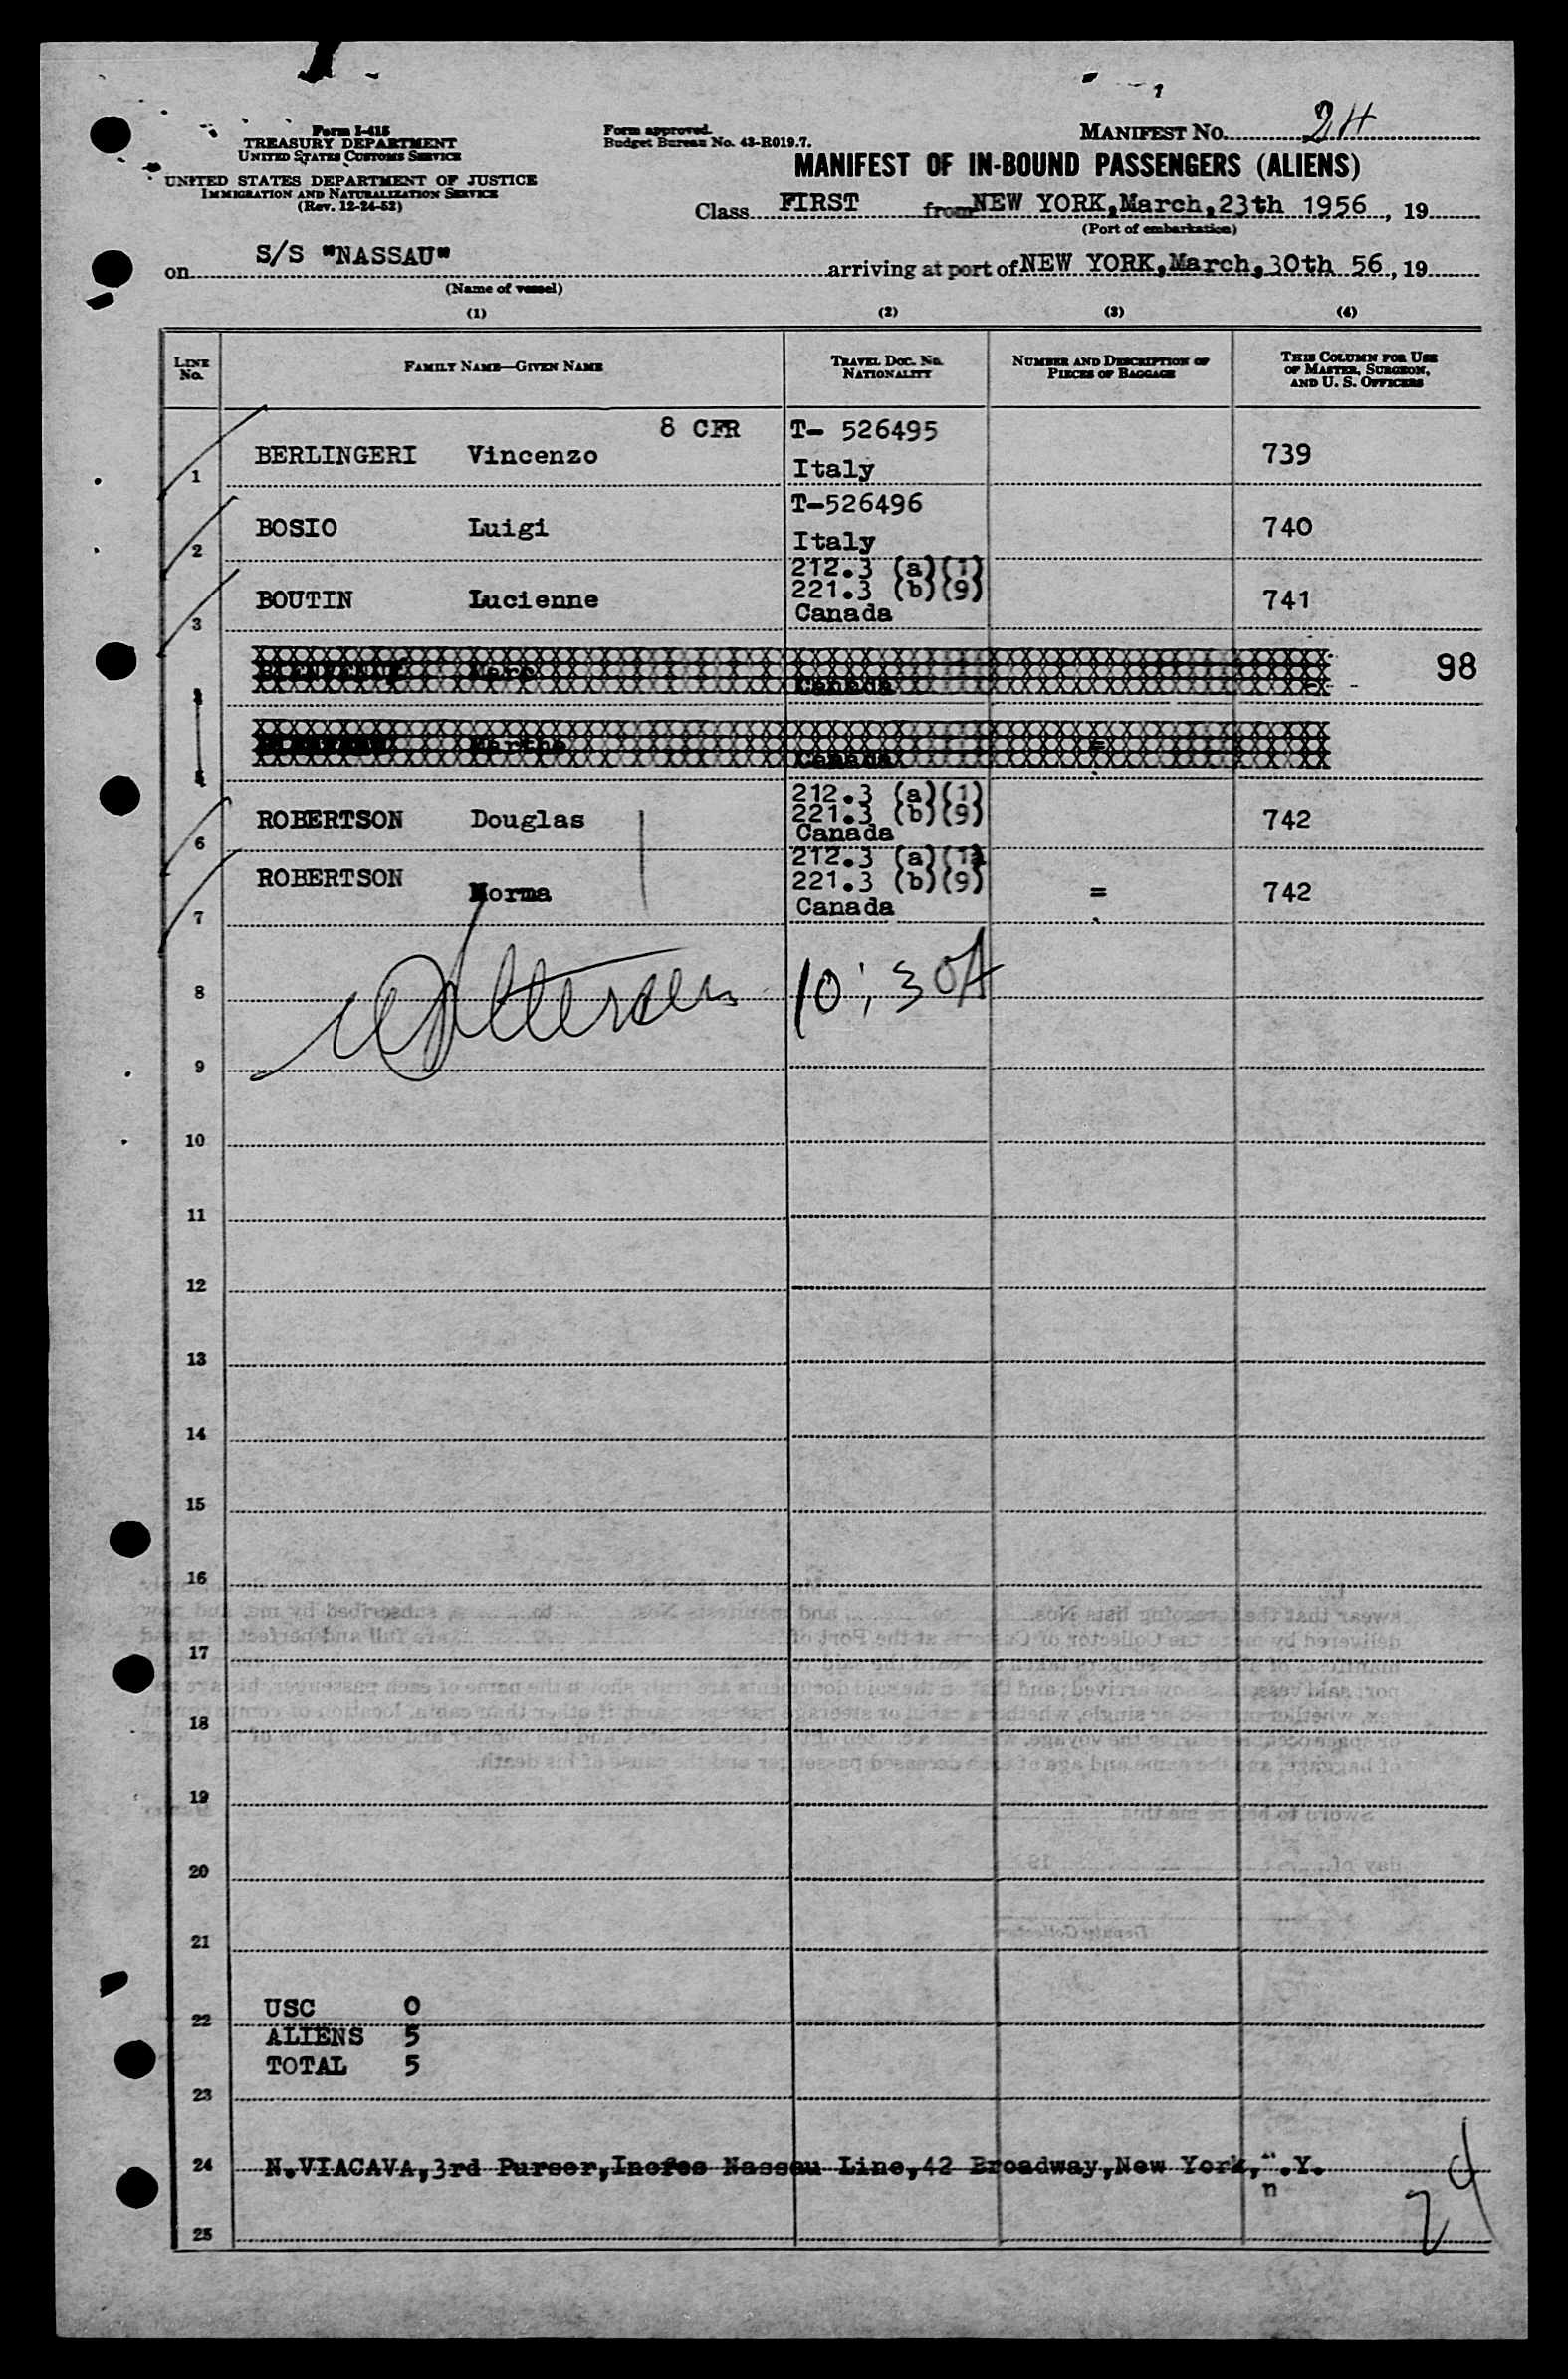 Form I-415
TREASURY DEPARTMENT
UNITED STATES CUSTOMS SERVICE
UNITED STATES DEPARTMENT OF JUSTICE
IMMIGRATION AND NATURALIZATION SERVICE
(Rev. 12-24-52)
Form approved.
Budget Bureau No. 43-R019.7.
MANIFEST NO. 24
MANIFEST OF IN-BOUND PASSENGERS (ALIENS)
Class FIRST from NEW YORK,March,23th 1956, 19
(Port of embarkation)
on S/S "NASSAU" arriving at port of NEW YORK,March,30th 56, 19
(Name of vessel)
(1) (2) (3) (4)
LINE No. FAMILY NAME—GIVEN NAME TRAVEL DOC. NO. NATIONALITY NUMBER AND DESCRIPTION OF PIECES OF BAGGAGE THIS COLUMN FOR USE OF MASTER, SURGEON, AND U. S. OFFICERS
8 CFR T- 526495
1 BERLINGERI Vincenzo Italy 739
T-526496
2 BOSIO Luigi Italy 740
212.3 (a)(1)
221.3 (b)(9)
3 BOUTIN Lucienne Canada 741
4 Marc Canada 98
5 Marthe Canada =
212.3 (a)(1)
221.3 (b)(9)
6 ROBERTSON Douglas Canada 742
212.3 (a)(1)
221.3 (b)(9)
7 ROBERTSON Norma Canada = 742
8 10:30A
9
10
11
12
13
14
15
16
17
18
19
20
21
USC 0
22
ALIENS 5
TOTAL 5
23
24 N.VIACAVA,3rd Purser,Incres Nassau Line,42 Broadway,New York, .Y.
n
24
25